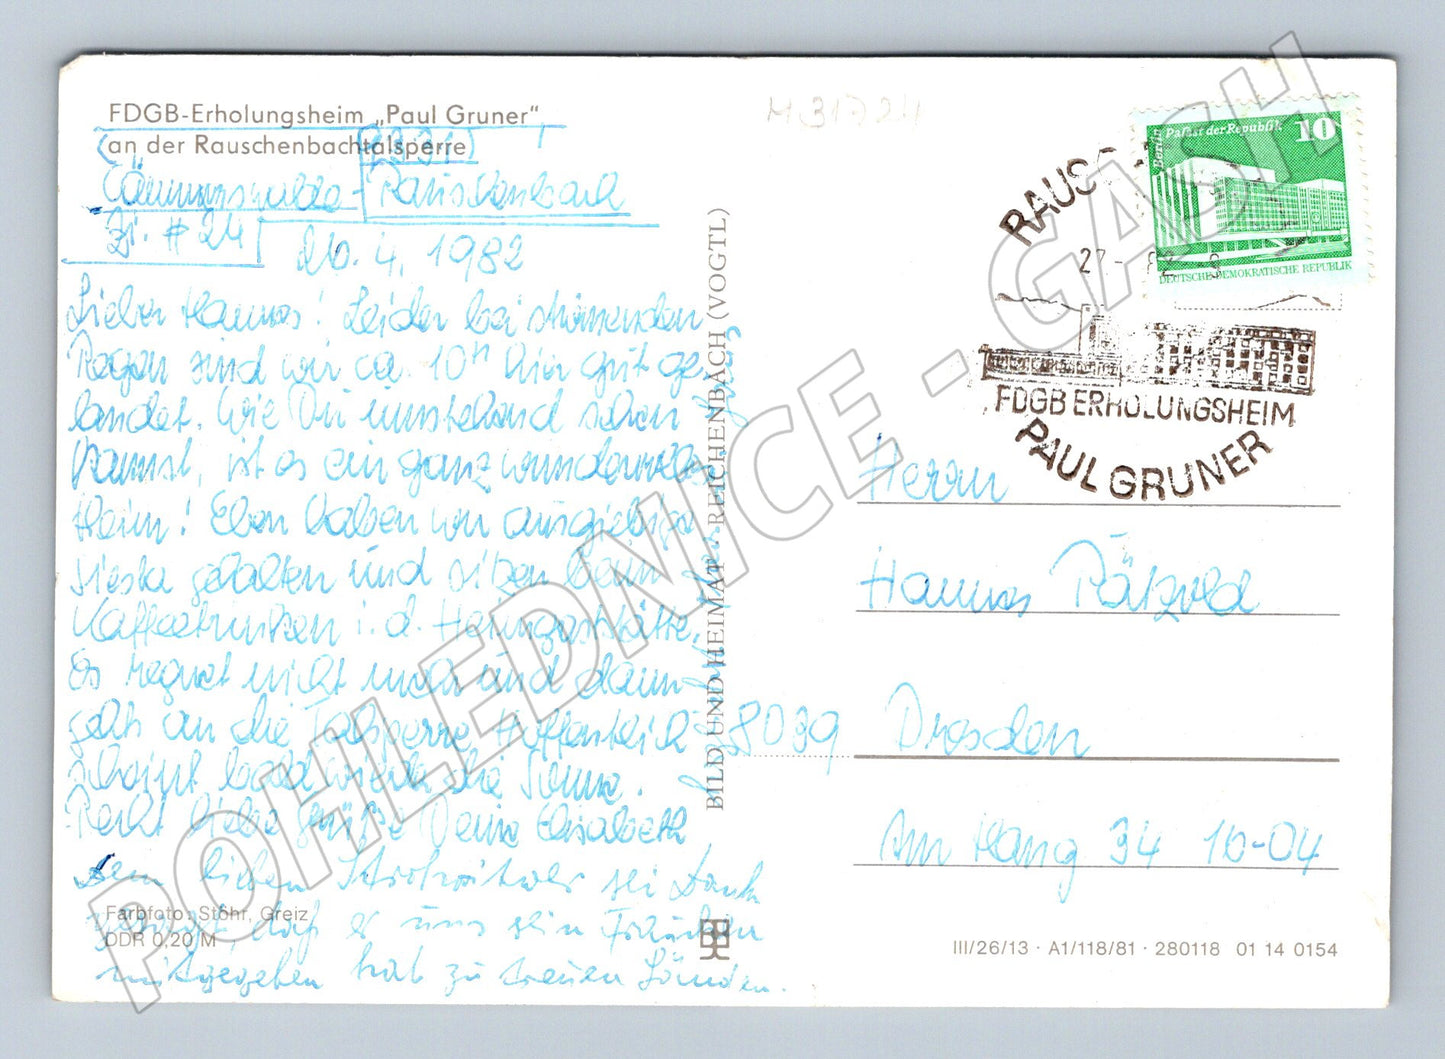 FDGB-Erholungsheim „Paul Gruner“
an der Rauschenbachtalsperre
(9331)
Cämmerswalde - Rauschenbach
Zi. # 24
26. 4. 1982
Lieber Hannes! Leider bei strömenden
Regen sind wir ca. 10ʰ hier gut ge
landet. Wie Du umstehend sehen
kannst, ist es ein ganz wundervolles
Heim! Eben haben wir ausgiebige
Siesta gehalten und sitzen beim
Kaffeetrinken i. d. Heimgaststätte.
Es regnet nicht mehr und dann
geht an die Talsperre. Hoffentlich
scheint bald wieder die Sonne.
Recht liebe Grüße Deine Elisabeth
Dem lieben sei Dank
gesagt, daß er uns sein Frauchen
mitgegeben hat zu treuen Händen.
Farbfoto: Stöhr, Greiz
DDR 0,20 M
BILD UND HEIMAT · REICHENBACH (VOGTL)
M 31724
Berlin Palast der Republik 10
DEUTSCHE DEMOKRATISCHE REPUBLIK
RAUSC
27 82 -9
FDGB ERHOLUNGSHEIM
PAUL GRUNER
Herrn
Hannes Pätzold
8039 Dresden
Am Hang 34 16-04
III/26/13 · A1/118/81 · 280118 01 14 0154
POHLEDNICE - GASH